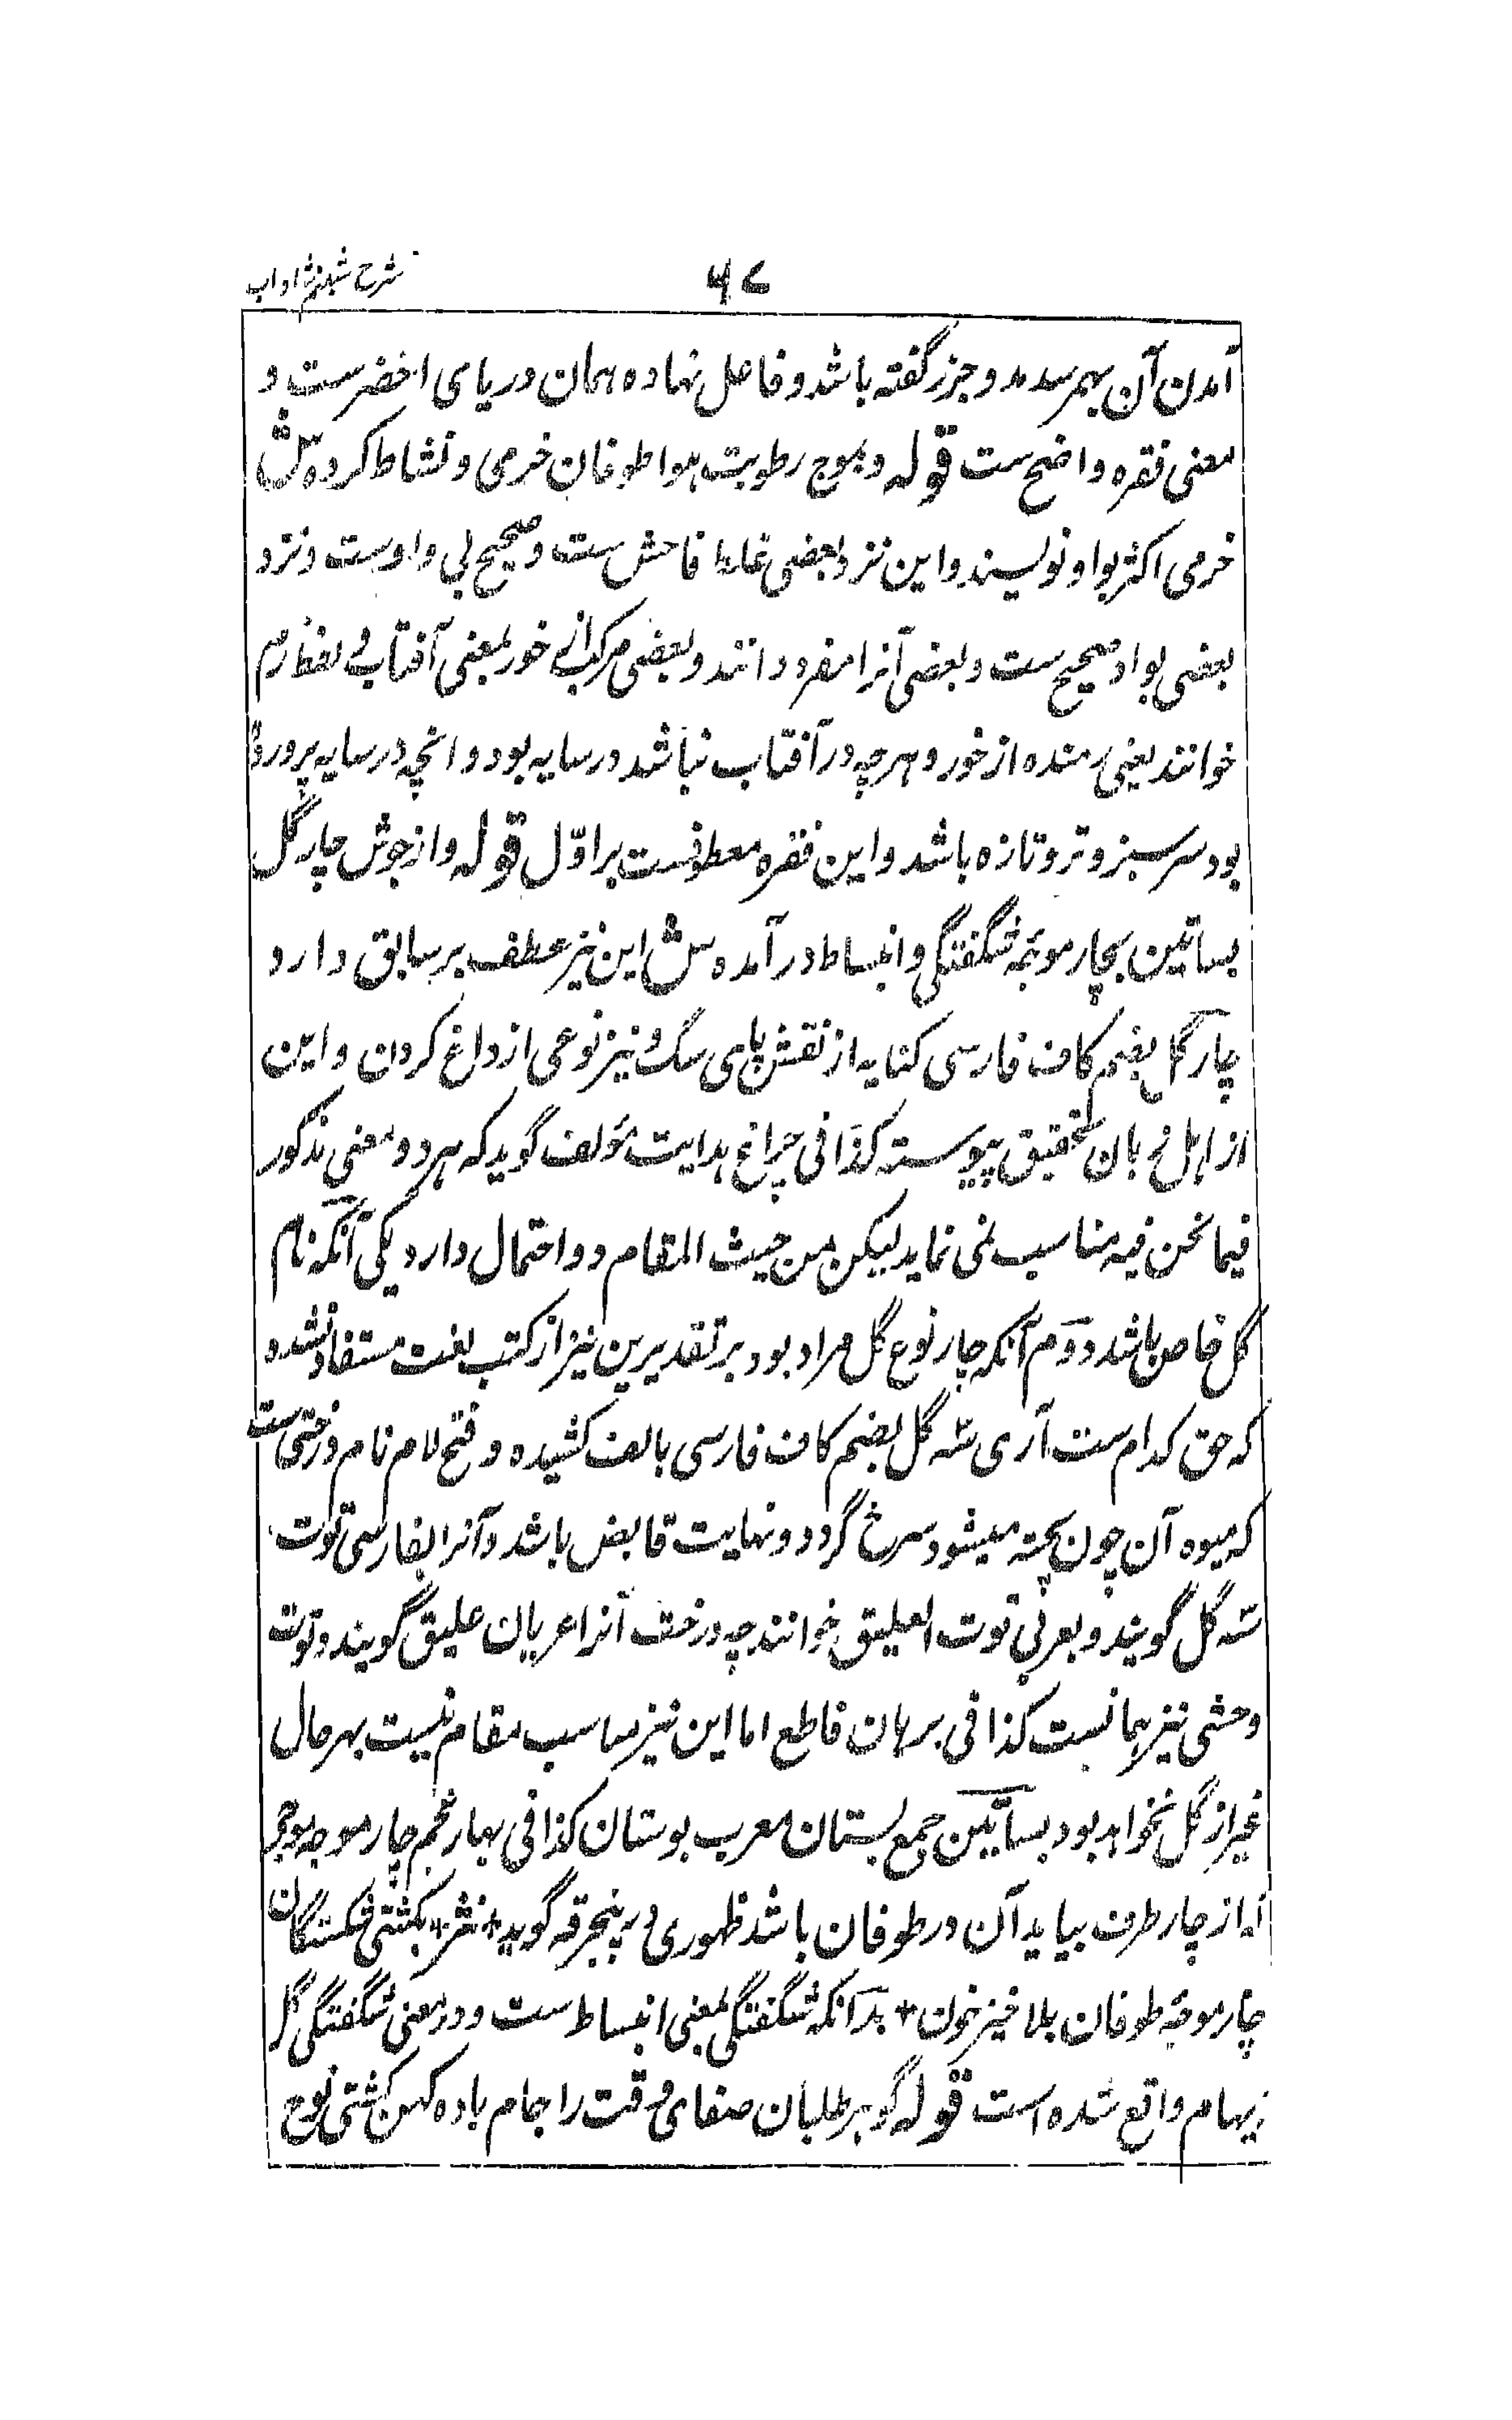 شرح شبنم شاداب
۶۷
آمدن آن بهمرسد مد و جزر گفته باشد و فاعل نهاده همان دریای اخضرست و
معنی فقره واضح ست قوله و بموج رطوبت هوا طوفان خرمی و نشاط کرده ش
خرمی اکثر بواو نویسند و این نزد بعضی غلط فاحش ست و صحیح بی واوست و نزد
بعضی بواو صحیح ست و بعضی آنرا مفرد دانند و بعضی مرکب از خور بمعنی آفتاب و لفظ رم
خوانند یعنی رمنده از خور و هر چه در آفتاب نباشد در سایه بود و انچه در سایه پرورده
بود سرسبز و تر و تازه باشد و این فقره معطوفست بر اوّل قوله و از جوش چار گل
بساتین بچار موجهٔ شگفتگی و انبساط در آمده ش این نیز عطف بر سابق دارد
چار گل بضم کاف فارسی کنایه از نقش پای سگ و نیز نوعی از داغ کردن و این
از اهل زبان بتحقیق پیوسته کذا فی چراغ هدایت مؤلف گوید که هر دو معنی مذکور
فیما نحن فیه مناسب نمی نماید لیکن من حیث المقام دو احتمال دارد یکی آنکه نام
گل خاص باشد دوم آنکه چار نوع گل مراد بود بر تقدیرین نیز از کتب لغت مستفاد نشده
که حق کدام ست آری سه گل بضم کاف فارسی بالف کشیده و فتح لام نام درختی ست
که میوه آن چون پخته میشود سرخ گردد و نهایت قابض باشد و آنرا بفارسی توت
سه گل گویند و بعربی توت العلیق خوانند چه درخت آنرا عربان علیق گویند و توت
وحشی نیز همانست کذا فی برهان قاطع اما این نیز مناسب مقام نیست بهر حال
غیر از گل نخواهد بود بساتین جمع بستان معرب بوستان کذا فی بهار عجم چار موجه موجی
که از چار طرف بیاید آن در طوفان باشد ظهوری در پنجرقعه گوید * نثر * بکشتی شکستگان
چار موجهٔ طوفان بلا خیز خون * بدآنکه شگفتگی بمعنی انبساط ست و در معنی شگفتگی گل
ایهام واقع شده است قوله گوهر طلبان صفای وقت را جام باده کهن کشتی نوح